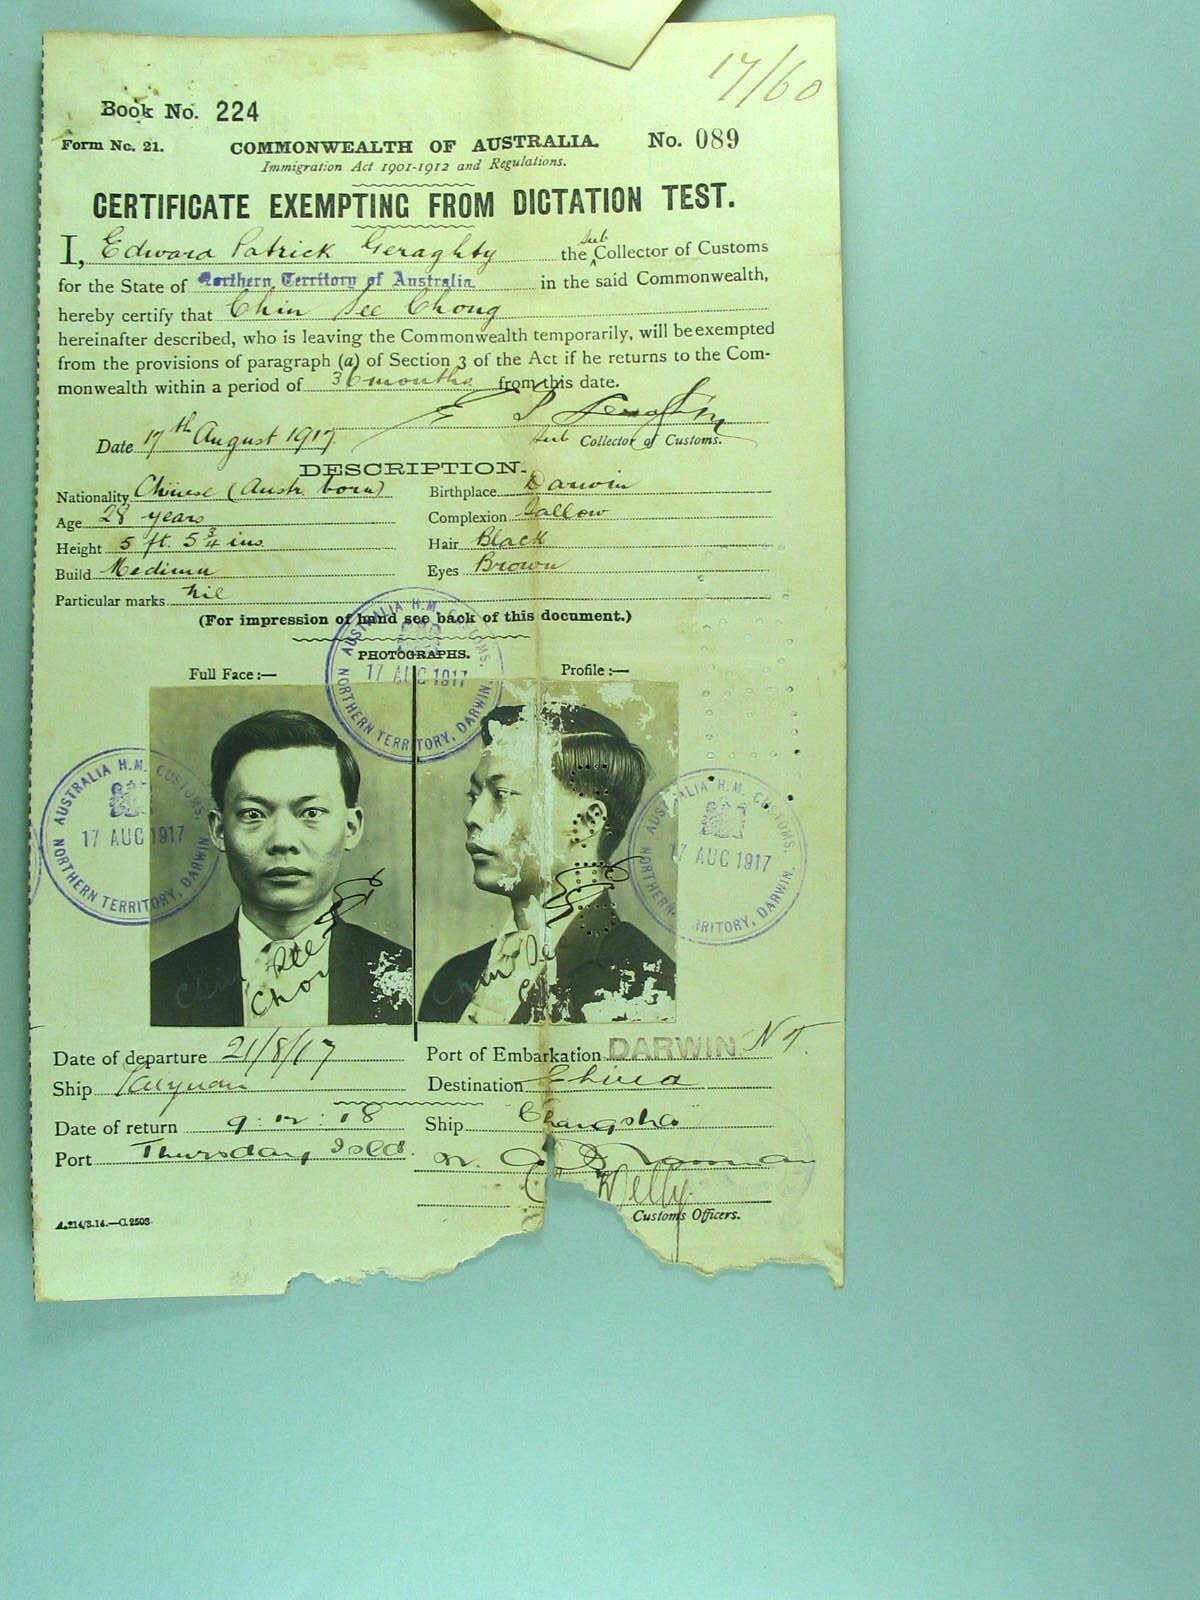 17/60
Book No. 224
Form No. 21. COMMONWEALTH OF AUSTRALIA. No. 089
Immigration Act 1901-1912 and Regulations.
CERTIFICATE EXEMPTING FROM DICTATION TEST.
I, Edward Patrick Geraghty the Sub Collector of Customs
for the State of Northern Territory of Australia in the said Commonwealth,
hereby certify that Chin See Chong
hereinafter described, who is leaving the Commonwealth temporarily, will be exempted
from the provisions of paragraph (a) of Section 3 of the Act if he returns to the Com-
monwealth within a period of 36 months from this date.
E P Geraghty
Date 17th August 1917 Sub Collector of Customs.
DESCRIPTION.
Nationality Chinese (Austr. born) Birthplace Darwin
Age 28 years Complexion Sallow
Height 5 ft. 5 3/4 ins. Hair Black
Build Medium Eyes Brown
Particular marks nil
(For impression of hand see back of this document.)
PHOTOGRAPHS.
Full Face:— Profile:—
AUSTRALIA H.M. CUSTOMS.
17 AUG 1917
NORTHERN TERRITORY, DARWIN.
AUSTRALIA H.M. CUSTOMS.
17 AUG 1917
NORTHERN TERRITORY, DARWIN
AUSTRALIA H.M. CUSTOMS.
17 AUG 1917
NORTHERN TERRITORY, DARWIN.
Chin See Chon
Chin Se
Date of departure 21/8/17 Port of Embarkation DARWIN N T.
Ship Taiyuan Destination China
Date of return 9:12:18 Ship Changsha
Port Thursday Isld.
Customs Officers.
A.214/3.14.—C.2503